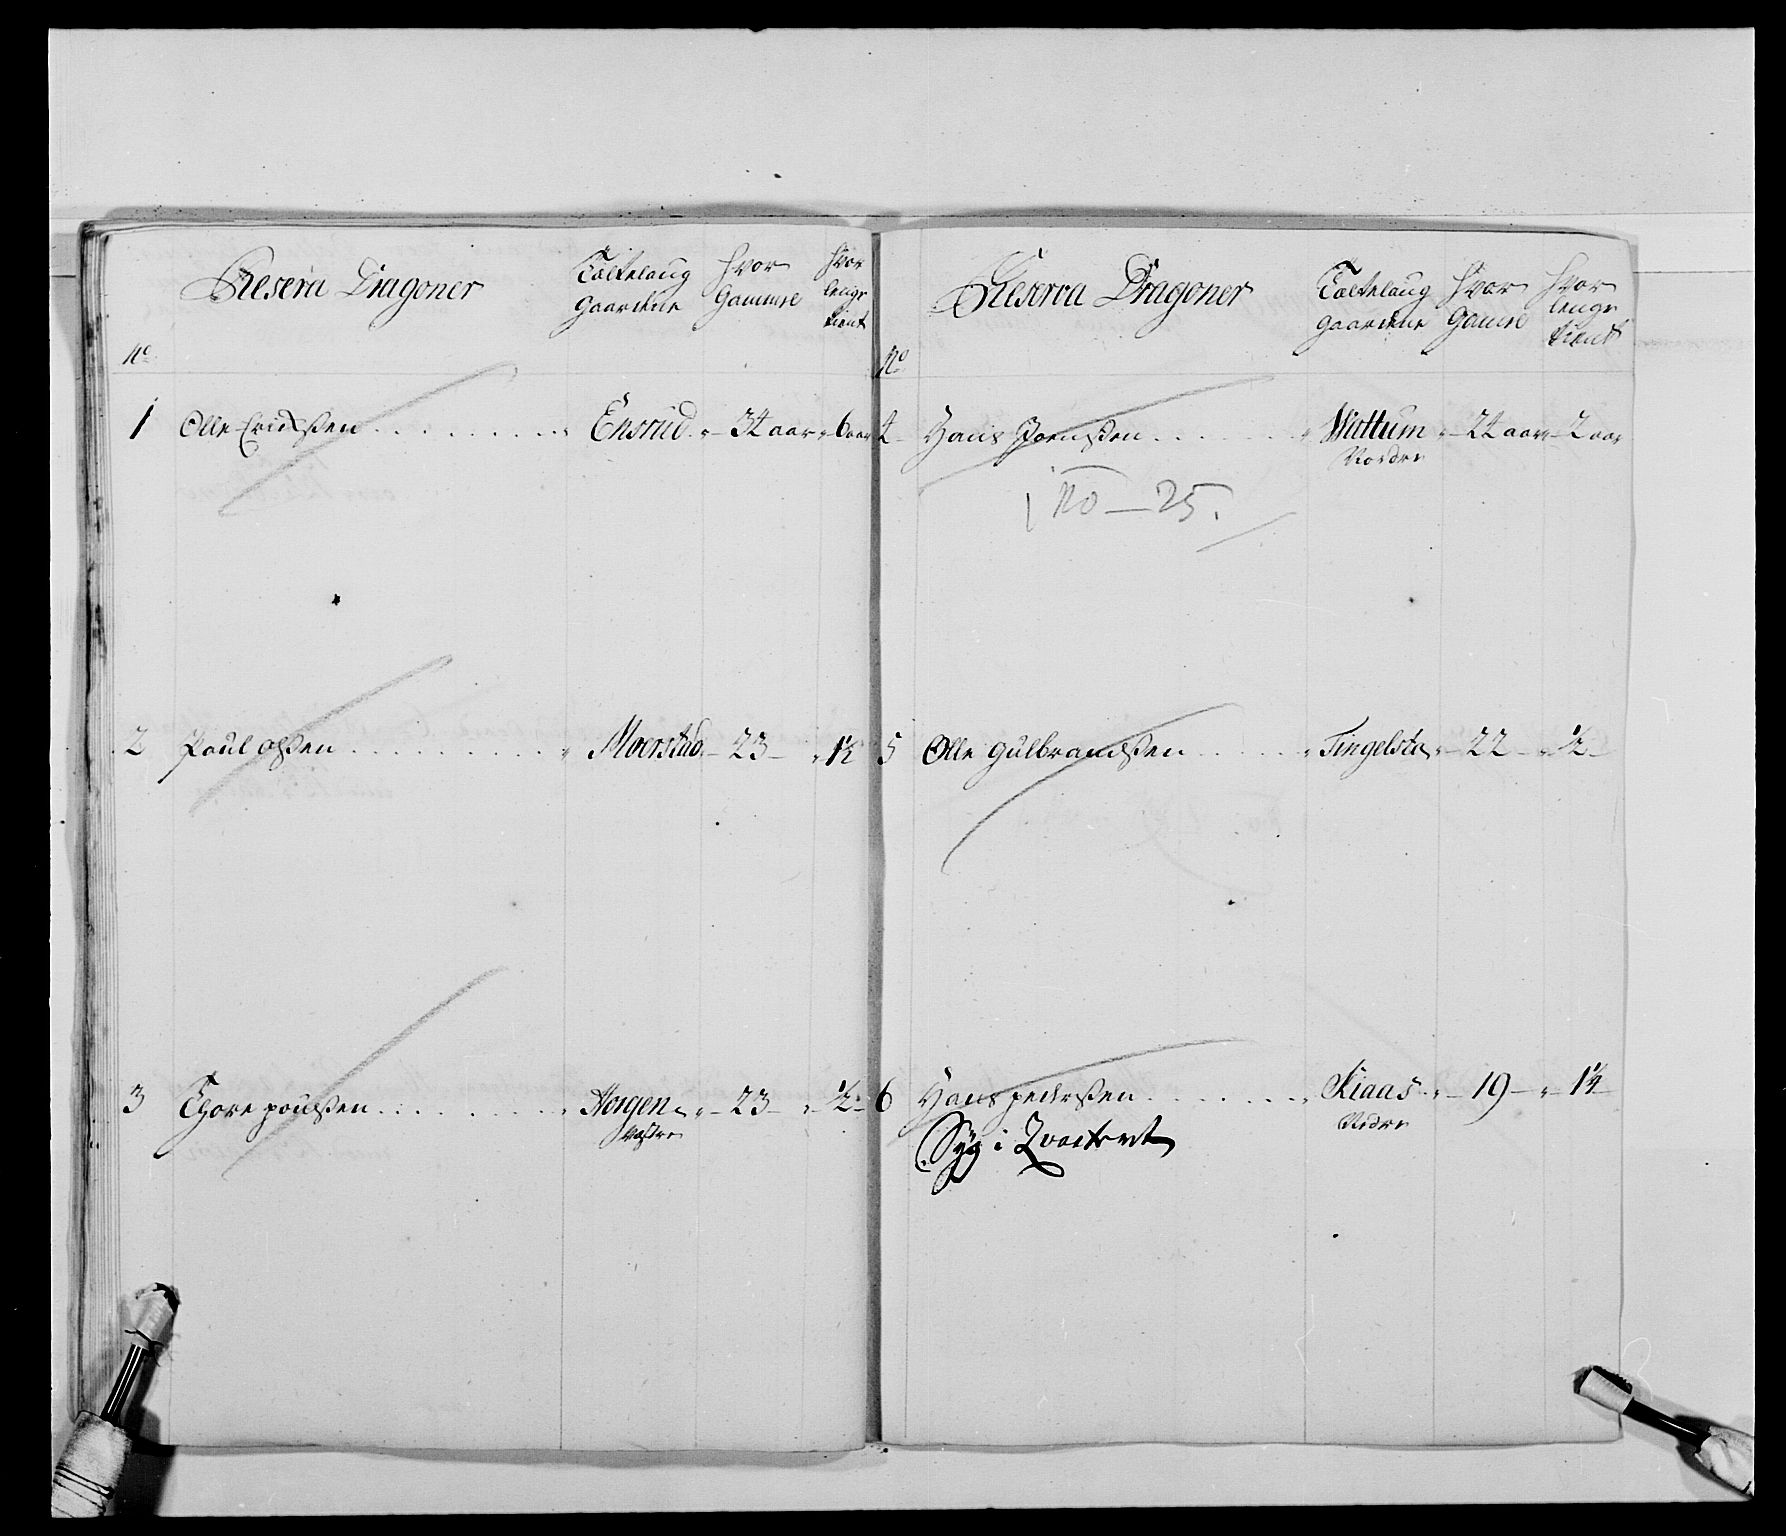 Reserva Dragoner
Tæltelaug Gaardene
Hvor Gammel
Hvor lenge tient
No
1 Olle Erichsen . . . . . . . . . Ensrud. - 34 aar - 6 aar
2 Poul olsen . . . . . . . . . Moerstad. - 23 - 1½
3 Thore poulsen . . . . . . . . . Horgen - 23 - ½
Vestre
Reserva Dragoner
Tæltelaug Gaardene
Hvor Gamel
Hvor lenge tient
No
4 Hans Joensen . . . . . . Wattum - 24 aar - 2 aar
Nordre
i No - 25.
5 Olle Gulbrandsen . . . . . Tingelsta - 22 - ½
6 Hans pedersen . . . . . . Kiaas - 19 - 1¼
Nedre
Syg i Qvarteret